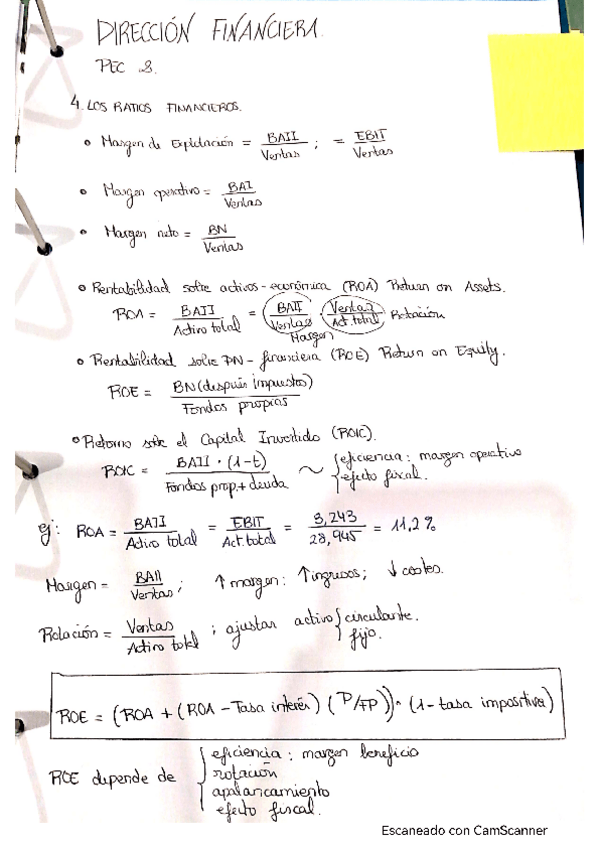 DIRECCIÓN FINANCIERA.
PEC 3.
4. LOS RATIOS FINANCIEROS.
• Margen de Explotación = BAII / Ventas ; = EBIT / Ventas
• Margen operativo = BAI / Ventas
• Margen neto = BN / Ventas
• Rentabilidad sobre activos - económica (ROA) Return on Assets.
ROA = BAII / Activo total = BAII / Ventas · Ventas / Act. total Rotación
Margen
• Rentabilidad sobre PN - financiera (ROE) Return on Equity.
ROE = BN (después impuestos) / Fondos propios
• Retorno sobre el Capital Invertido (ROIC).
ROIC = BAII · (1-t) / Fondos prop. + deuda ~ { eficiencia: margen operativo
efecto fiscal.
ej: ROA = BAII / Activo total = EBIT / Act. total = 3,243 / 28,945 = 11,2 %
Margen = BAII / Ventas ; ↑ margen: ↑ ingresos; ↓ costes.
Rotación = Ventas / Activo total ; ajustar activo { circulante.
fijo.
ROE = (ROA + (ROA - Tasa interés) (P/FP)) · (1 - tasa impositiva)
ROE depende de { eficiencia: margen beneficio
rotación
apalancamiento
efecto fiscal.
Escaneado con CamScanner